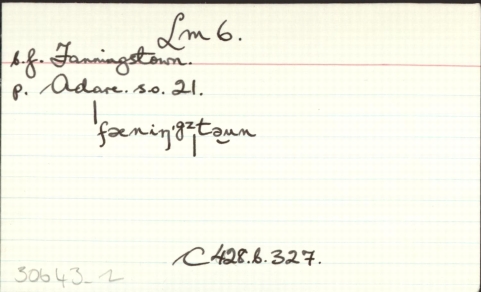 Lm 6.
b.f. Fanningstown.
p. Adare. s.o. 21.
ˈfæniŋˑgᶻˌtəu̯n
C 428.b.327.
30643_2